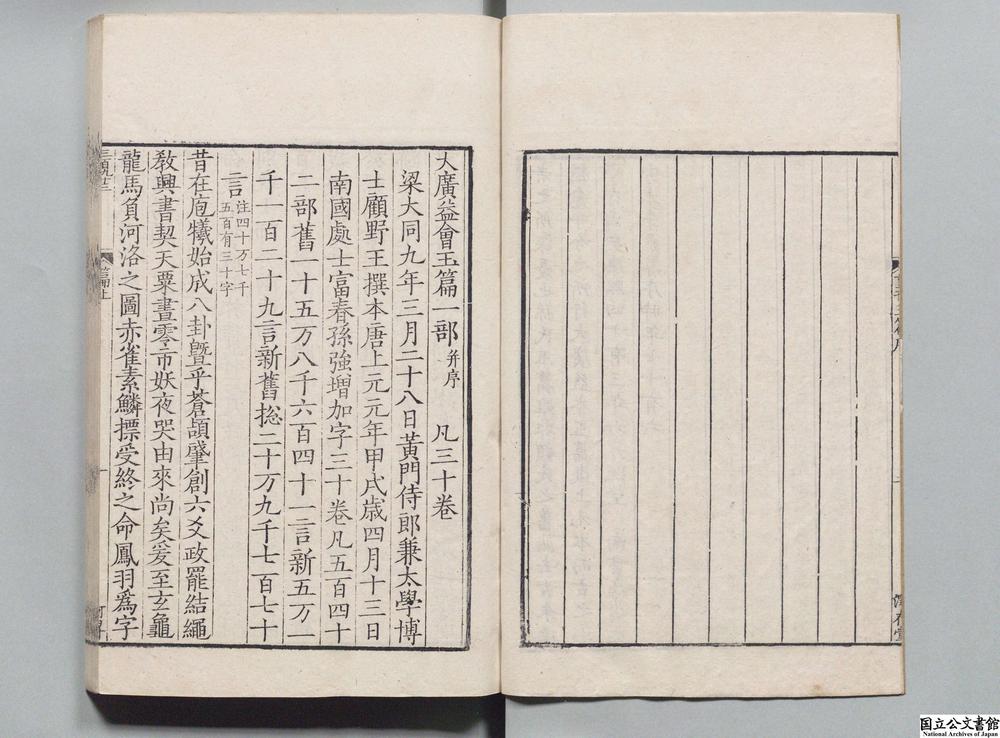 大廣益會玉篇一部并序 凡三十卷
梁大同九年三月二十八日黃門侍郎兼太學博
士顧野王撰本唐上元元年甲戌歲四月十三日
南國處士富春孫強增加字三十卷凡五百四十
二部舊一十五万八千六百四十一言新五万一
千一百二十九言新舊揔二十万九千七百七十
言注四十万七千
五百有三十字
昔在庖犧始成八卦暨乎蒼頡肇創六爻政罷結繩
教興書契天粟晝零市妖夜哭由來尚矣爰至玄龜
龍馬負河洛之圖赤雀素鱗摽受終之命鳳羽爲字
篇上
国立公文書館
National Archives of Japan